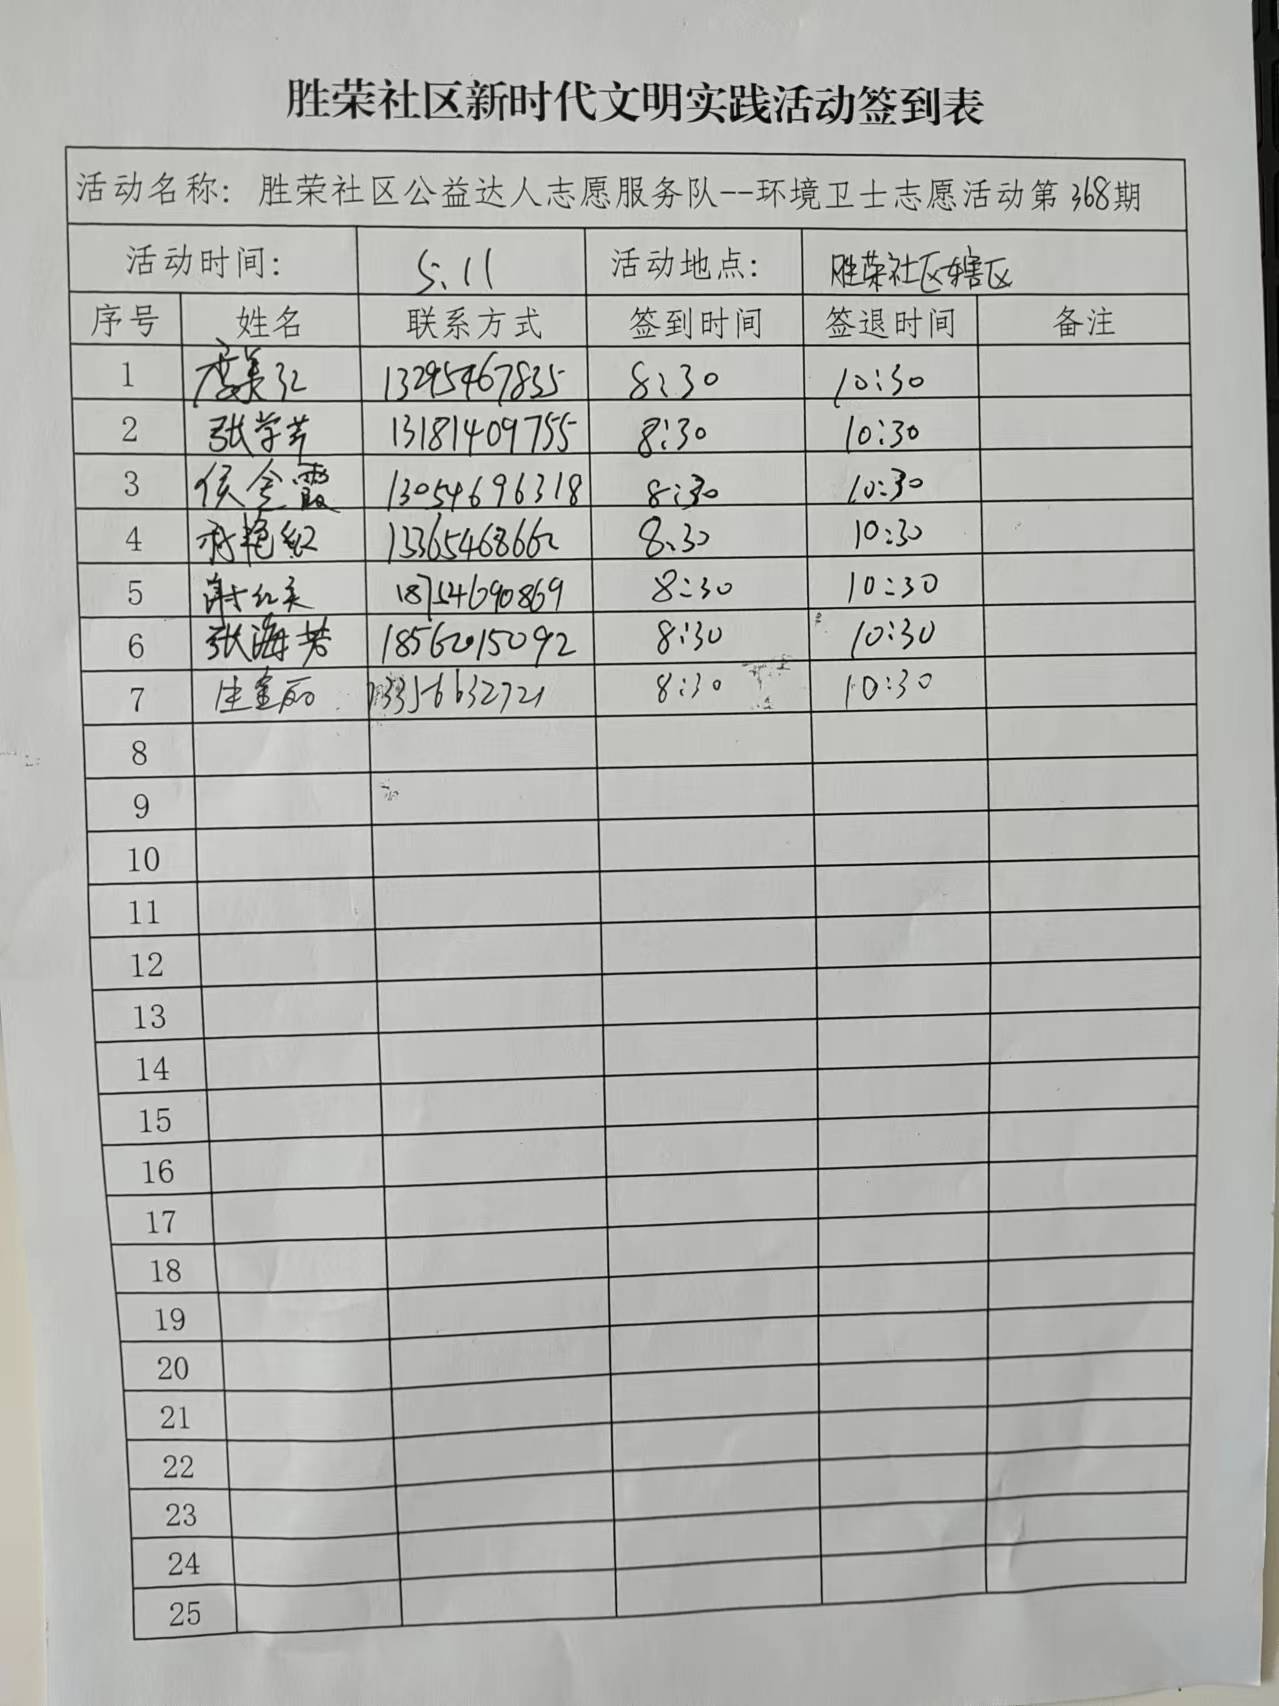 胜荣社区新时代文明实践活动签到表
活动名称：胜荣社区公益达人志愿服务队--环境卫士志愿活动第368期
活动时间： 5.11 活动地点： 胜荣社区辖区
序号 姓名 联系方式 签到时间 签退时间 备注
1 美红 13295467835 8:30 10:30
2 张学芳 13181409755 8:30 10:30
3 侯金霞 13054696318 8:30 10:30
4 艳红 13365468662 8:30 10:30
5 谢红英 18754690869 8:30 10:30
6 张海芳 18562015092 8:30 10:30
7 生金丽 13356632721 8:30 10:30
8
9
10
11
12
13
14
15
16
17
18
19
20
21
22
23
24
25